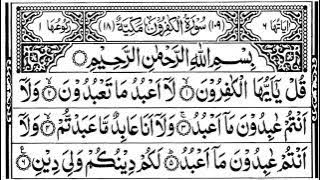 اٰيَاتُهَا ٦ (١٠٩) سُوْرَةُ الْكٰفِرُوْنَ مَكِّيَّةٌ (١٨) رُكُوْعُهَا ١
بِسْمِ اللّٰهِ الرَّحْمٰنِ الرَّحِيْمِ
قُلْ يٰٓاَيُّهَا الْكٰفِرُوْنَ ۝١ لَآ اَعْبُدُ مَا تَعْبُدُوْنَ ۝٢ وَلَآ
اَنْتُمْ عٰبِدُوْنَ مَآ اَعْبُدُ ۝٣ وَلَآ اَنَا عَابِدٌ مَّا عَبَدْتُّمْ ۝٤ وَلَآ
اَنْتُمْ عٰبِدُوْنَ مَآ اَعْبُدُ ۝٥ لَكُمْ دِيْنُكُمْ وَلِيَ دِيْنِ ۝٦